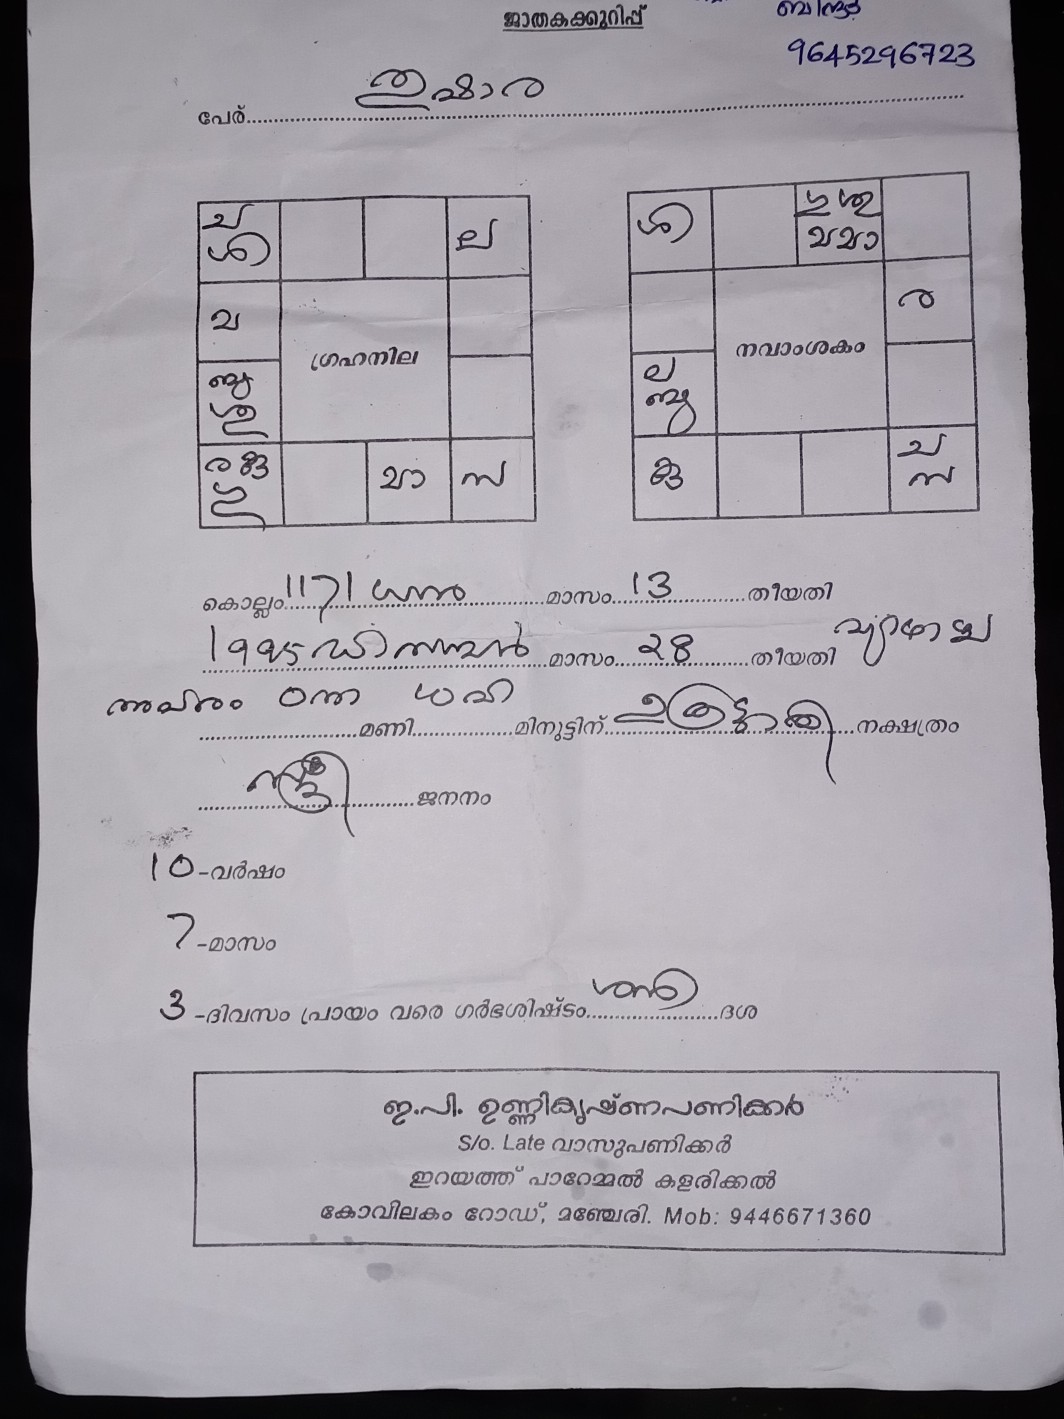 ജാതകക്കുറിപ്പ്
ബിന്ദു
9645296723
പേര്.....തുഷാര
ച ശി
ല
വ
ഗ്രഹനില
ബു ശു
ര കു ഗു
മാ
സ
ശി
ഗു ശു
മാ
ര
നവാംശകം
ല ബു
കു
ച സ
കൊല്ലം 1171 ധനു മാസം 13 തീയതി
1995 ഡിസമ്പർ മാസം 28 തീയതി വ്യാഴാഴ്ച
മണി മിനുട്ടിന് ഉത്രട്ടാതി നക്ഷത്രം
സ്ത്രീ ജനനം
10-വർഷം
7-മാസം
3-ദിവസം പ്രായം വരെ ഗർഭശിഷ്ടം ശനി ദശ
ഇ.പി. ഉണ്ണികൃഷ്ണപണിക്കർ
S/o. Late വാസുപണിക്കർ
ഇറയത്ത് പാറേമ്മൽ കളരിക്കൽ
കോവിലകം റോഡ്, മഞ്ചേരി. Mob: 9446671360